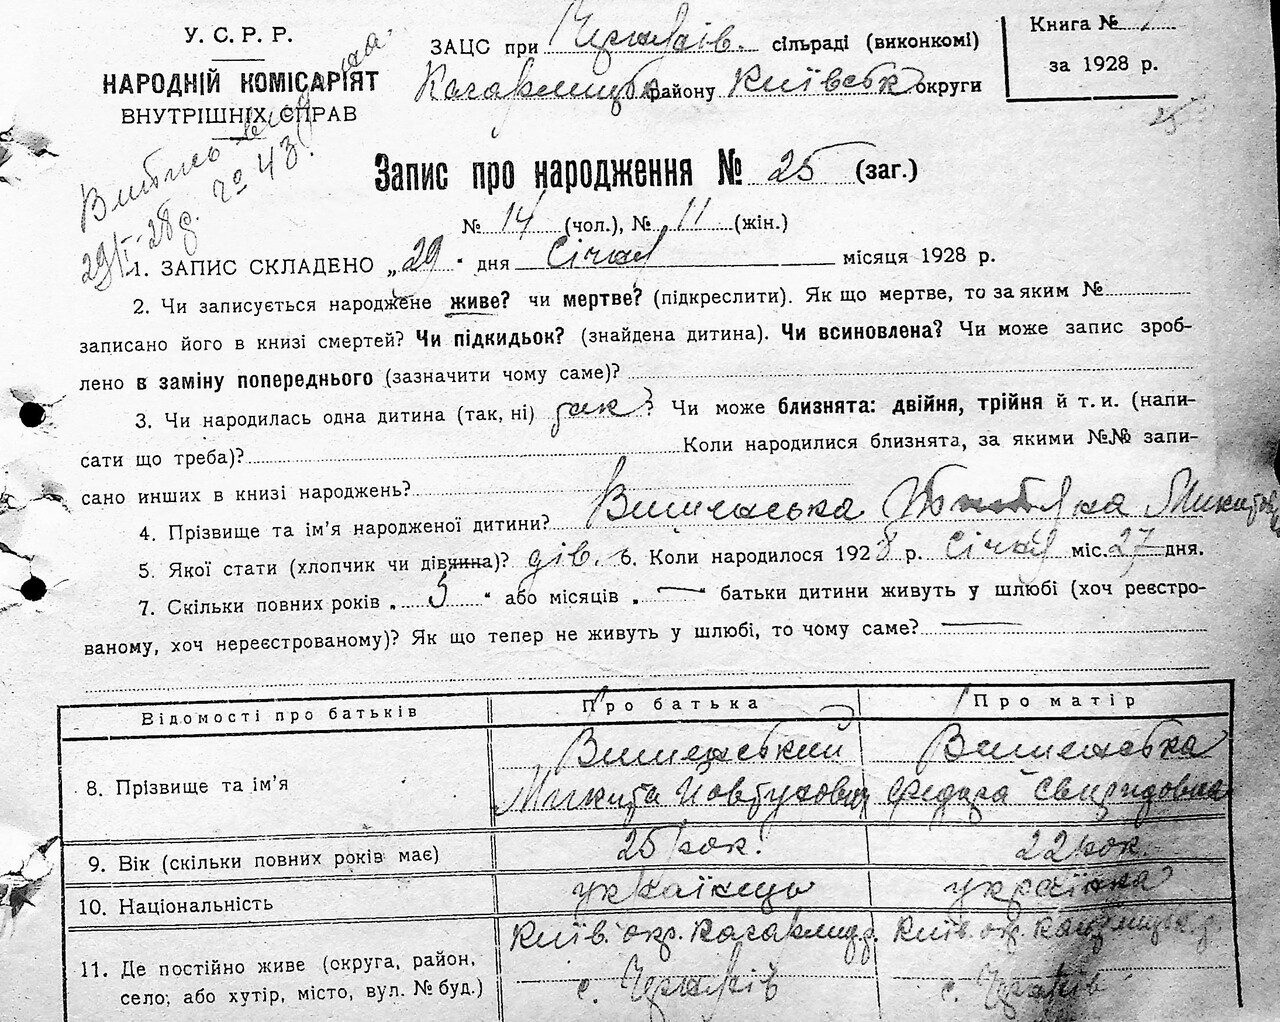 У. С. Р. Р.
НАРОДНІЙ КОМІСАРІЯТ
ВНУТРІШНІХ СПРАВ
ЗАЦС при сільраді (виконкомі)
Кагарлицьк району Київськ округи
Книга № 1
за 1928 р.
25
Витпись видана
29/I-28 р. № 43.
Запис про народження № 25 (заг.)
№ 14 (чол.), № 11 (жін.)
1. ЗАПИС СКЛАДЕНО „29 “ дня Січня місяця 1928 р.
2. Чи записується народжене живе? чи мертве? (підкреслити). Як що мертве, то за яким №
записано його в книзі смертей? Чи підкидьок? (знайдена дитина). Чи всиновлена? Чи може запис зроб-
лено в заміну попереднього (зазначити чому саме)?
3. Чи народилась одна дитина (так, ні) так? Чи може близнята: двійня, трійня й т. и. (напи-
сати що треба)? Коли народилися близнята, за якими №№ запи-
сано инших в книзі народжень?
4. Прізвище та ім’я народженої дитини? Микитов
5. Якої стати (хлопчик чи дівчина)? дів. 6. Коли народилося 1928 р. січня міс. 27 дня.
7. Скільки повних років „ 5 “ або місяців „ — “ батьки дитини живуть у шлюбі (хоч реєстро-
ваному, хоч нереєстрованому)? Як що тепер не живуть у шлюбі, то чому саме? —
Відомості про батьків Про батька Про матір
8. Прізвище та ім’я
Микита Йовтухович Федора Свиридовна
9. Вік (скільки повних років має) 25 рок. 22 рок.
10. Національність українець українка
11. Де постійно живе (округа, район, Київ. окр. Кагарлиц. р. Київ. окр. Кагарлицьк. р.
село, або хутір, місто, вул. № буд.) с. с.